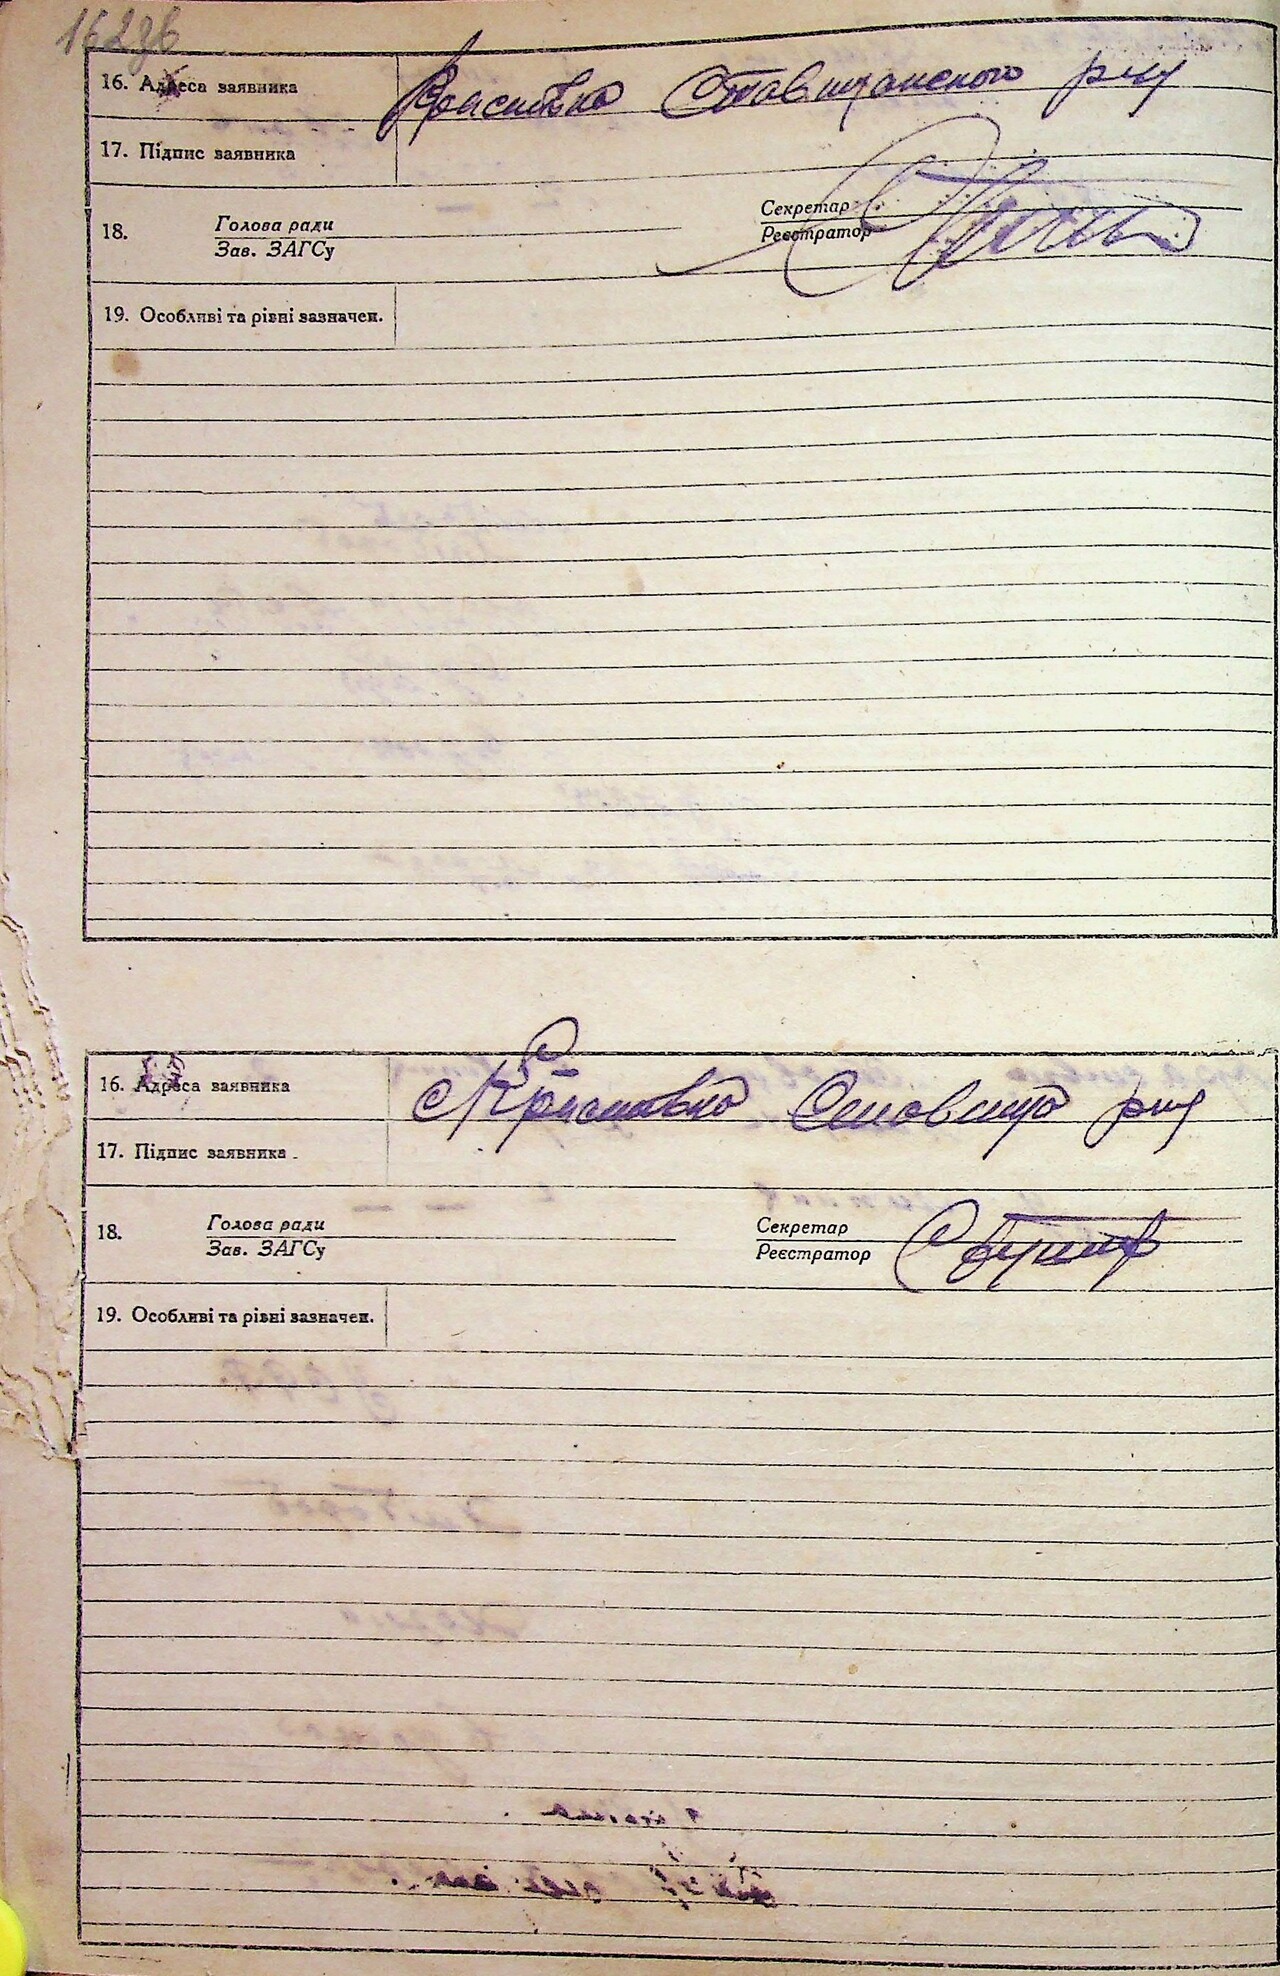 162зв
16. Адреса заявника Красилівка Ставищанского р-ну
17. Підпис заявника
18. Голова ради Секретар
Зав. ЗАГСу Реєстратор
19. Особливі та різні зазначен.
16. Адреса заявника с Красилівка Ставищ р-ну
17. Підпис заявника
18. Голова ради Секретар
Зав. ЗАГСу Реєстратор
19. Особливі та різні зазначен.